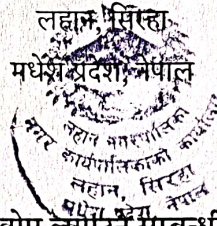 लहान, सिरहा
मधेश प्रदेश, नेपाल
लहान नगरपालिका
नगर कार्यपालिकाको कार्यालय
लहान, सिरहा
मधेश प्रदेश नेपाल